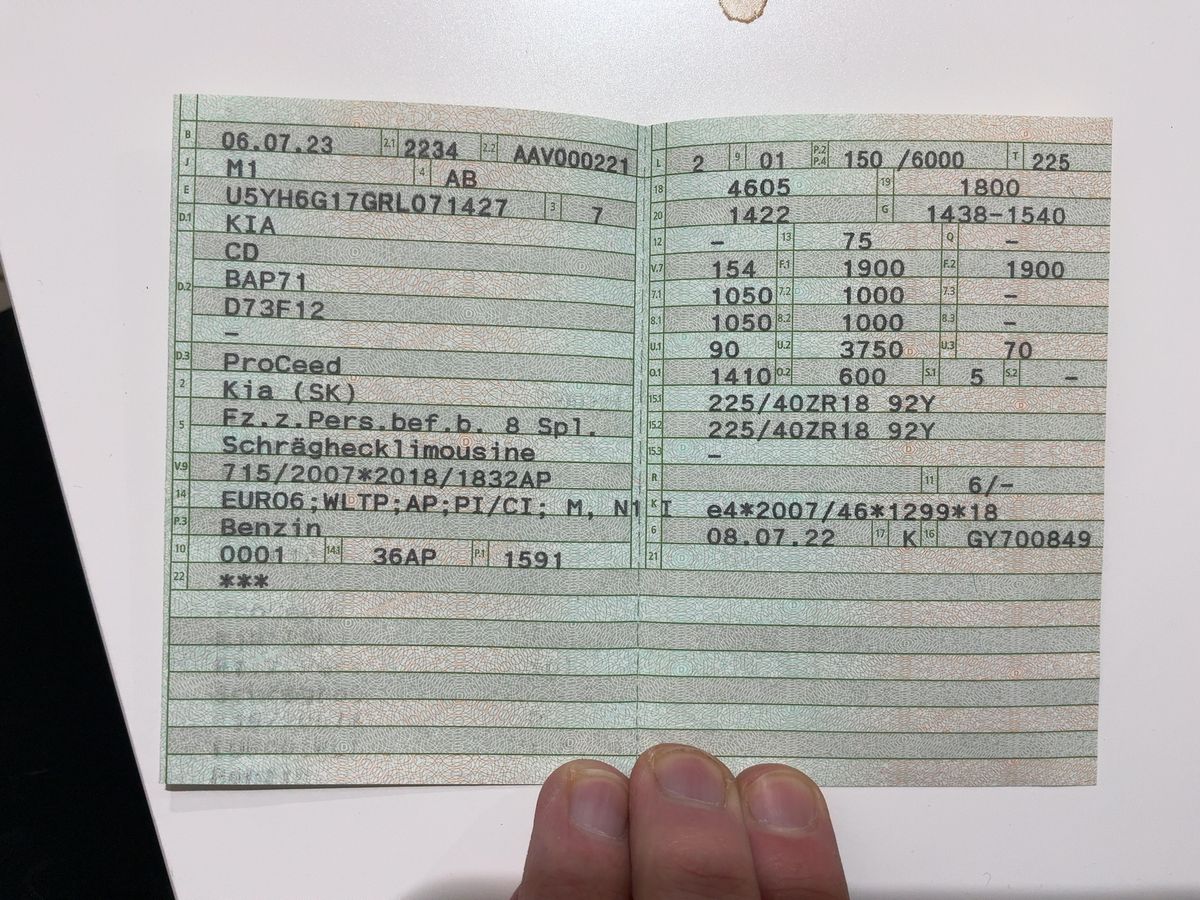 B 06.07.23 2.1 2234 2.2 AAV000221
J M1 4 AB
E U5YH6G17GRL071427 3 7
D.1 KIA
CD
D.2 BAP71
D73F12
–
D.3 ProCeed
2 Kia (SK)
5 Fz.z.Pers.bef.b. 8 Spl.
Schräghecklimousine
V.9 715/2007*2018/1832AP
14 EURO6;WLTP;AP;PI/CI; M, N1 I
P.3 Benzin
10 0001 14.1 36AP P.1 1591
22 ***
L 2 9 01 P.2 P.4 150 /6000 T 225
18 4605 19 1800
20 1422 G 1438-1540
12 – 13 75 Q –
V.7 154 F.1 1900 F.2 1900
7.1 1050 7.2 1000 7.3 –
8.1 1050 8.2 1000 8.3 –
U.1 90 U.2 3750 U.3 70
O.1 1410 O.2 600 S.1 5 S.2 –
15.1 225/40ZR18 92Y
15.2 225/40ZR18 92Y
15.3 –
R 11 6/–
K e4*2007/46*1299*18
6 08.07.22 17 K 16 GY700849
21